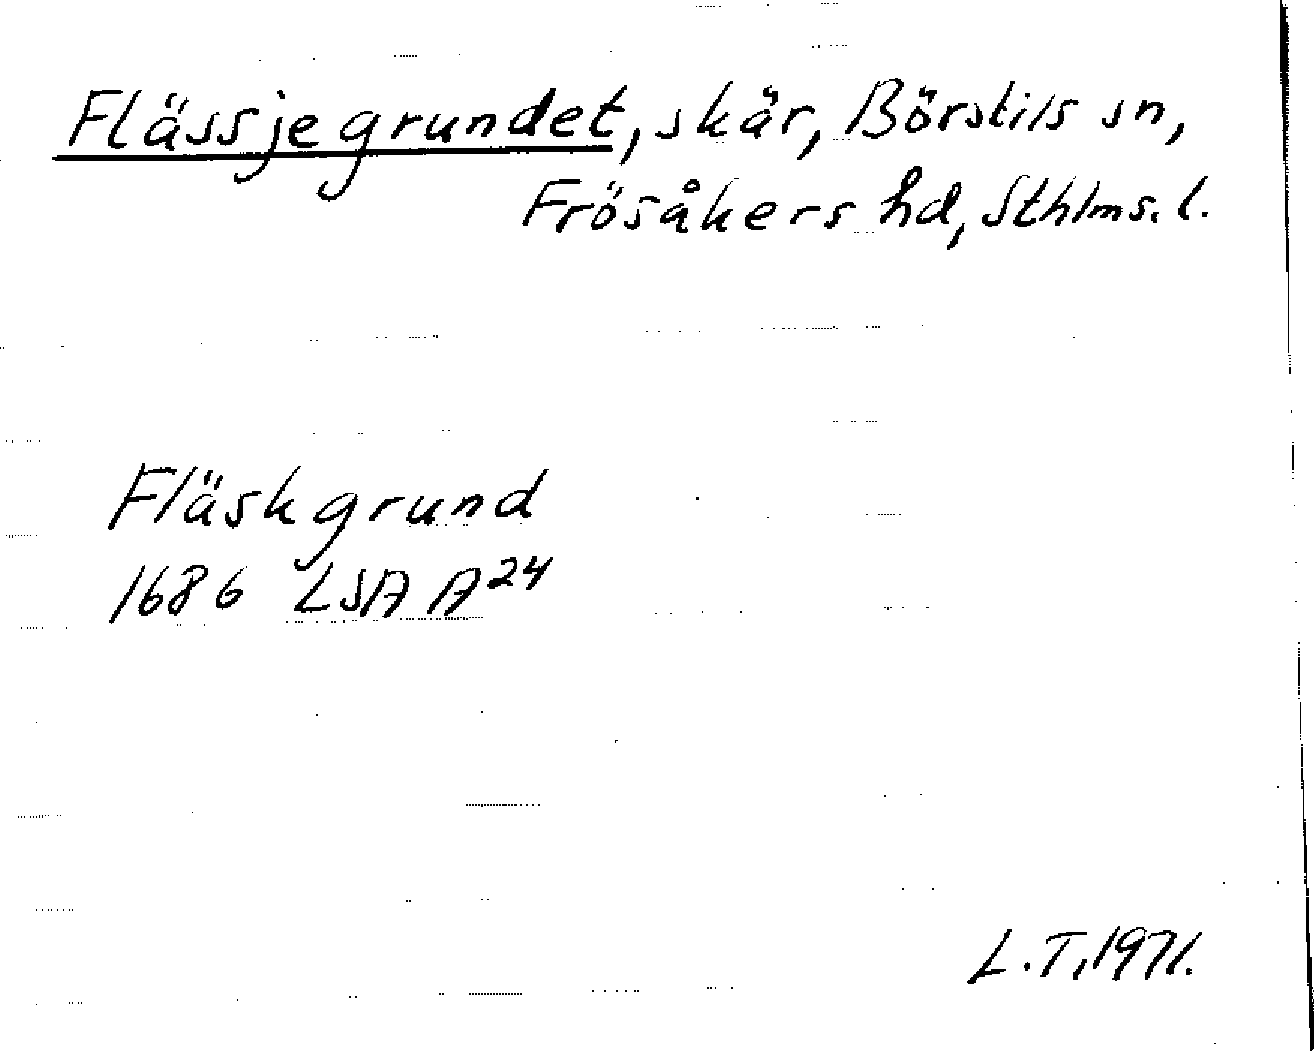 Flässjegrundet, skär, Börstils sn,
Frösåkers hd, Sthlms. l.
Fläskgrund
1686 LSA A24
L.T. 1971.